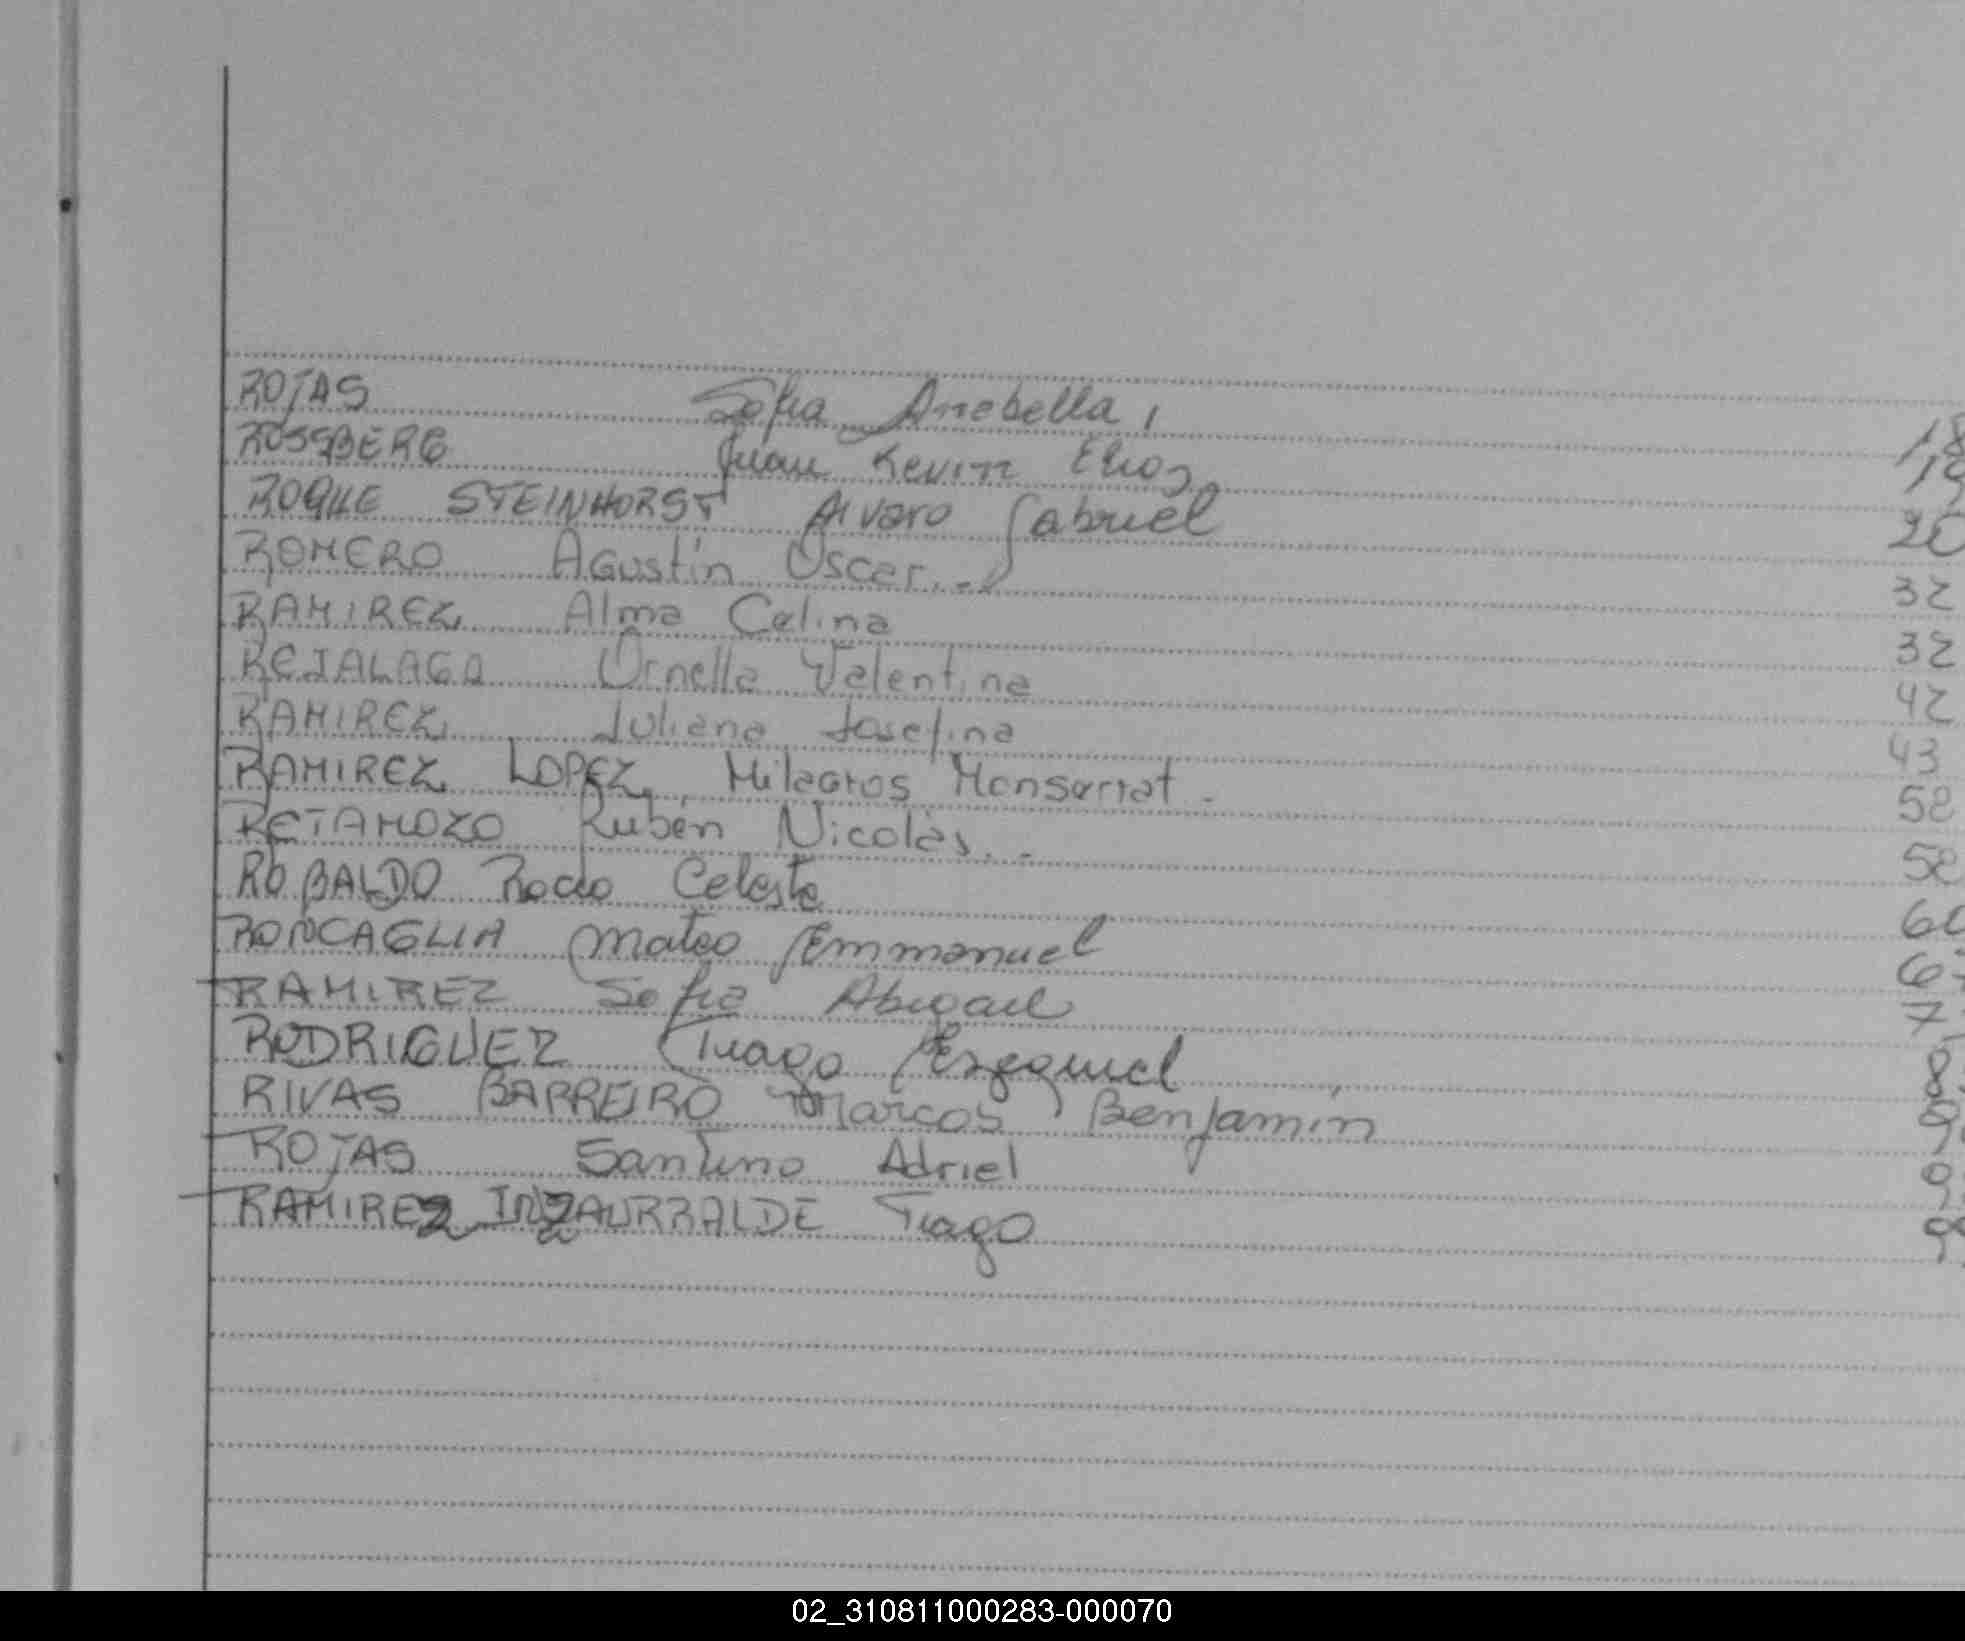 ROJAS Sofia Anabella, 18
ROSSBERG Juan Kevin Elios 19
ROQUE STEINHORST Alvaro Gabriel 20
ROMERO Agustín Oscar.- 32
RAMIREZ Alma Celina 32
REJALAGA Ornella Valentina 42
RAMIREZ Juliana Josefina 43
RAMIREZ LOPEZ, Milagros Monserrat.- 58
RETAMOZO Ruben Nicolás.- 58
ROBALDO Rocio Celeste 60
RONCAGLIA Mateo Emmanuel
RAMIREZ Sofia Abigail
RODRIGUEZ Tiago Ezequiel
RIVAS BARREIRO Marcos Benjamín
ROJAS Santino Adriel
RAMIREZ INZAURRALDE Tiago
02_310811000283-000070